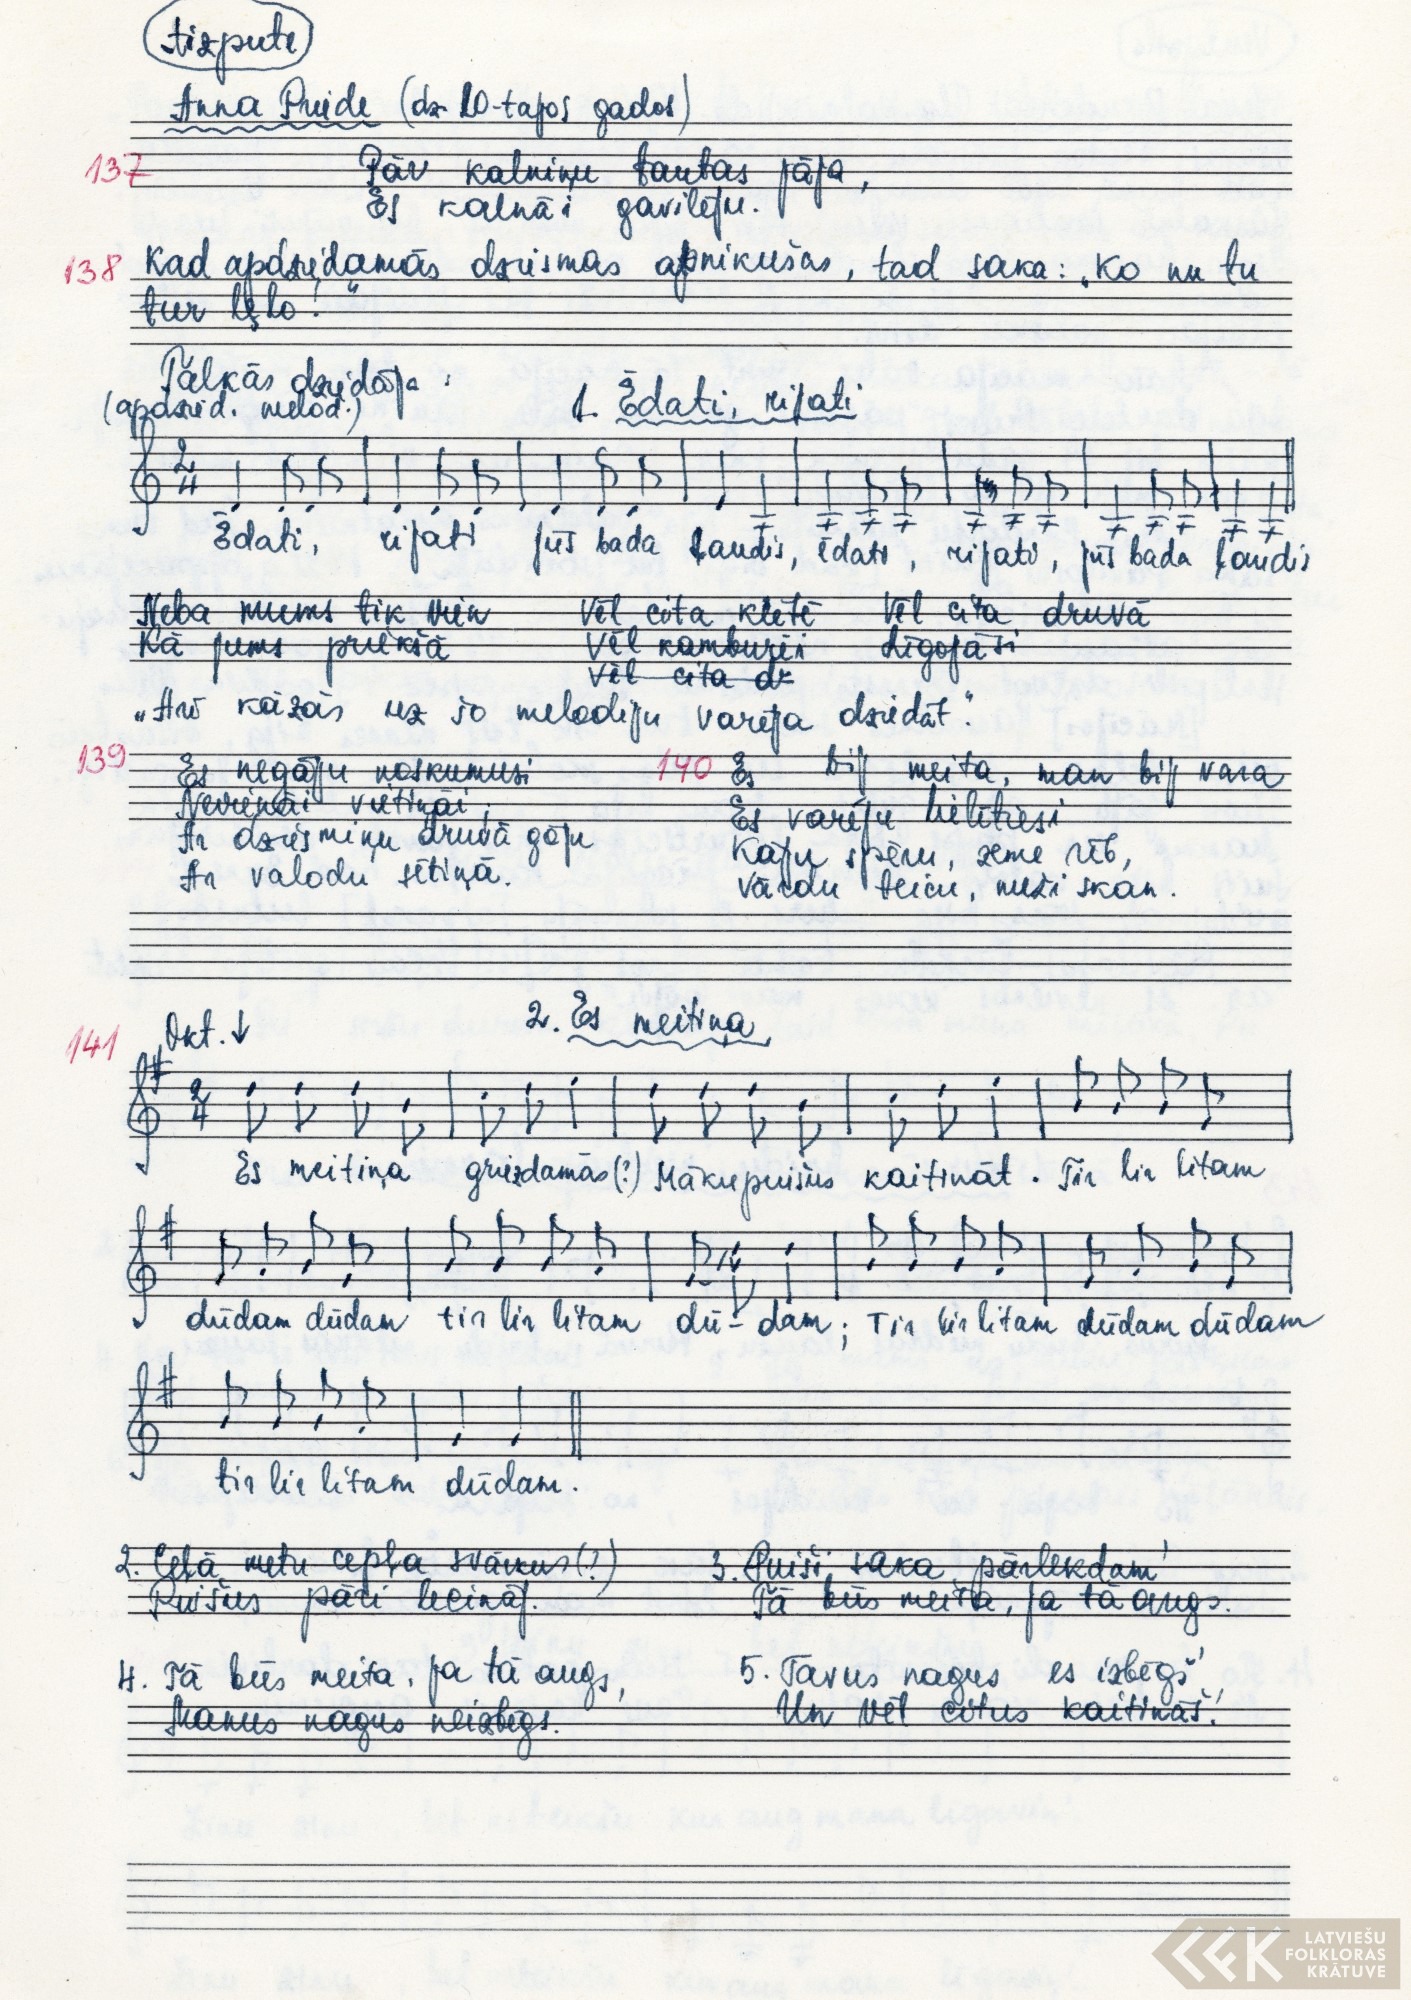 Aizpute
Anna Priede (dz. 10-tajos gados)
137
Pār kalniņu tautas jāja,
Es kalnāi gavilēju.
138 Kad apdziedamās dziesmas apnikušas, tad saka: „Ko nu tu
tur lēlo!"
Tālkās dziedāja:
(apdzied. melod.)
1. Ēdati, rijati
2/4
Ēdati, rijati jūs bada ļaudis, ēdati, rijati, jūs bada ļaudis
Neba mums tik vien
Kā jums priekšā
Vēl cita klētē
Vēl kamburēi
Vēl cita dr
Vēl cita druvā
Līgojāsi
„Arī kāzās uz šo melodiju varēja dziedāt"
139
Es negāju noskumusi
Nevienāi vietiņāi,
Ar dziesmiņu druvā gāju
Ar valodu sētiņā.
140
Es bij meita, man bij vara
Es varēju lielīties
Kāju spēru, zeme rīb,
Vārdu teicu, meži skan.
141 Okt. ↓
2. Es meitiņa
2/4
Es meitiņa griezdamās(?) Māku puišus kaitināt. Tir lir litam
dūdam dūdam tir lir litam dū-dam; Tir lir litam dūdam dūdam
tir lir litam dūdam.
2. Ceļā metu cepļa svārkus(?)
Puišus pāri lecināj.
3. Puiši saka pārlekdam'
Tā būs meita, ja tā augs.
4. Tā būs meita, ja tā augs,
Manus nagus neizbēgs.
5. Tavus nagus es izbēgš'
Un vēl citus kaitināš'.
LATVIEŠU
FOLKLORAS
KRĀTUVE